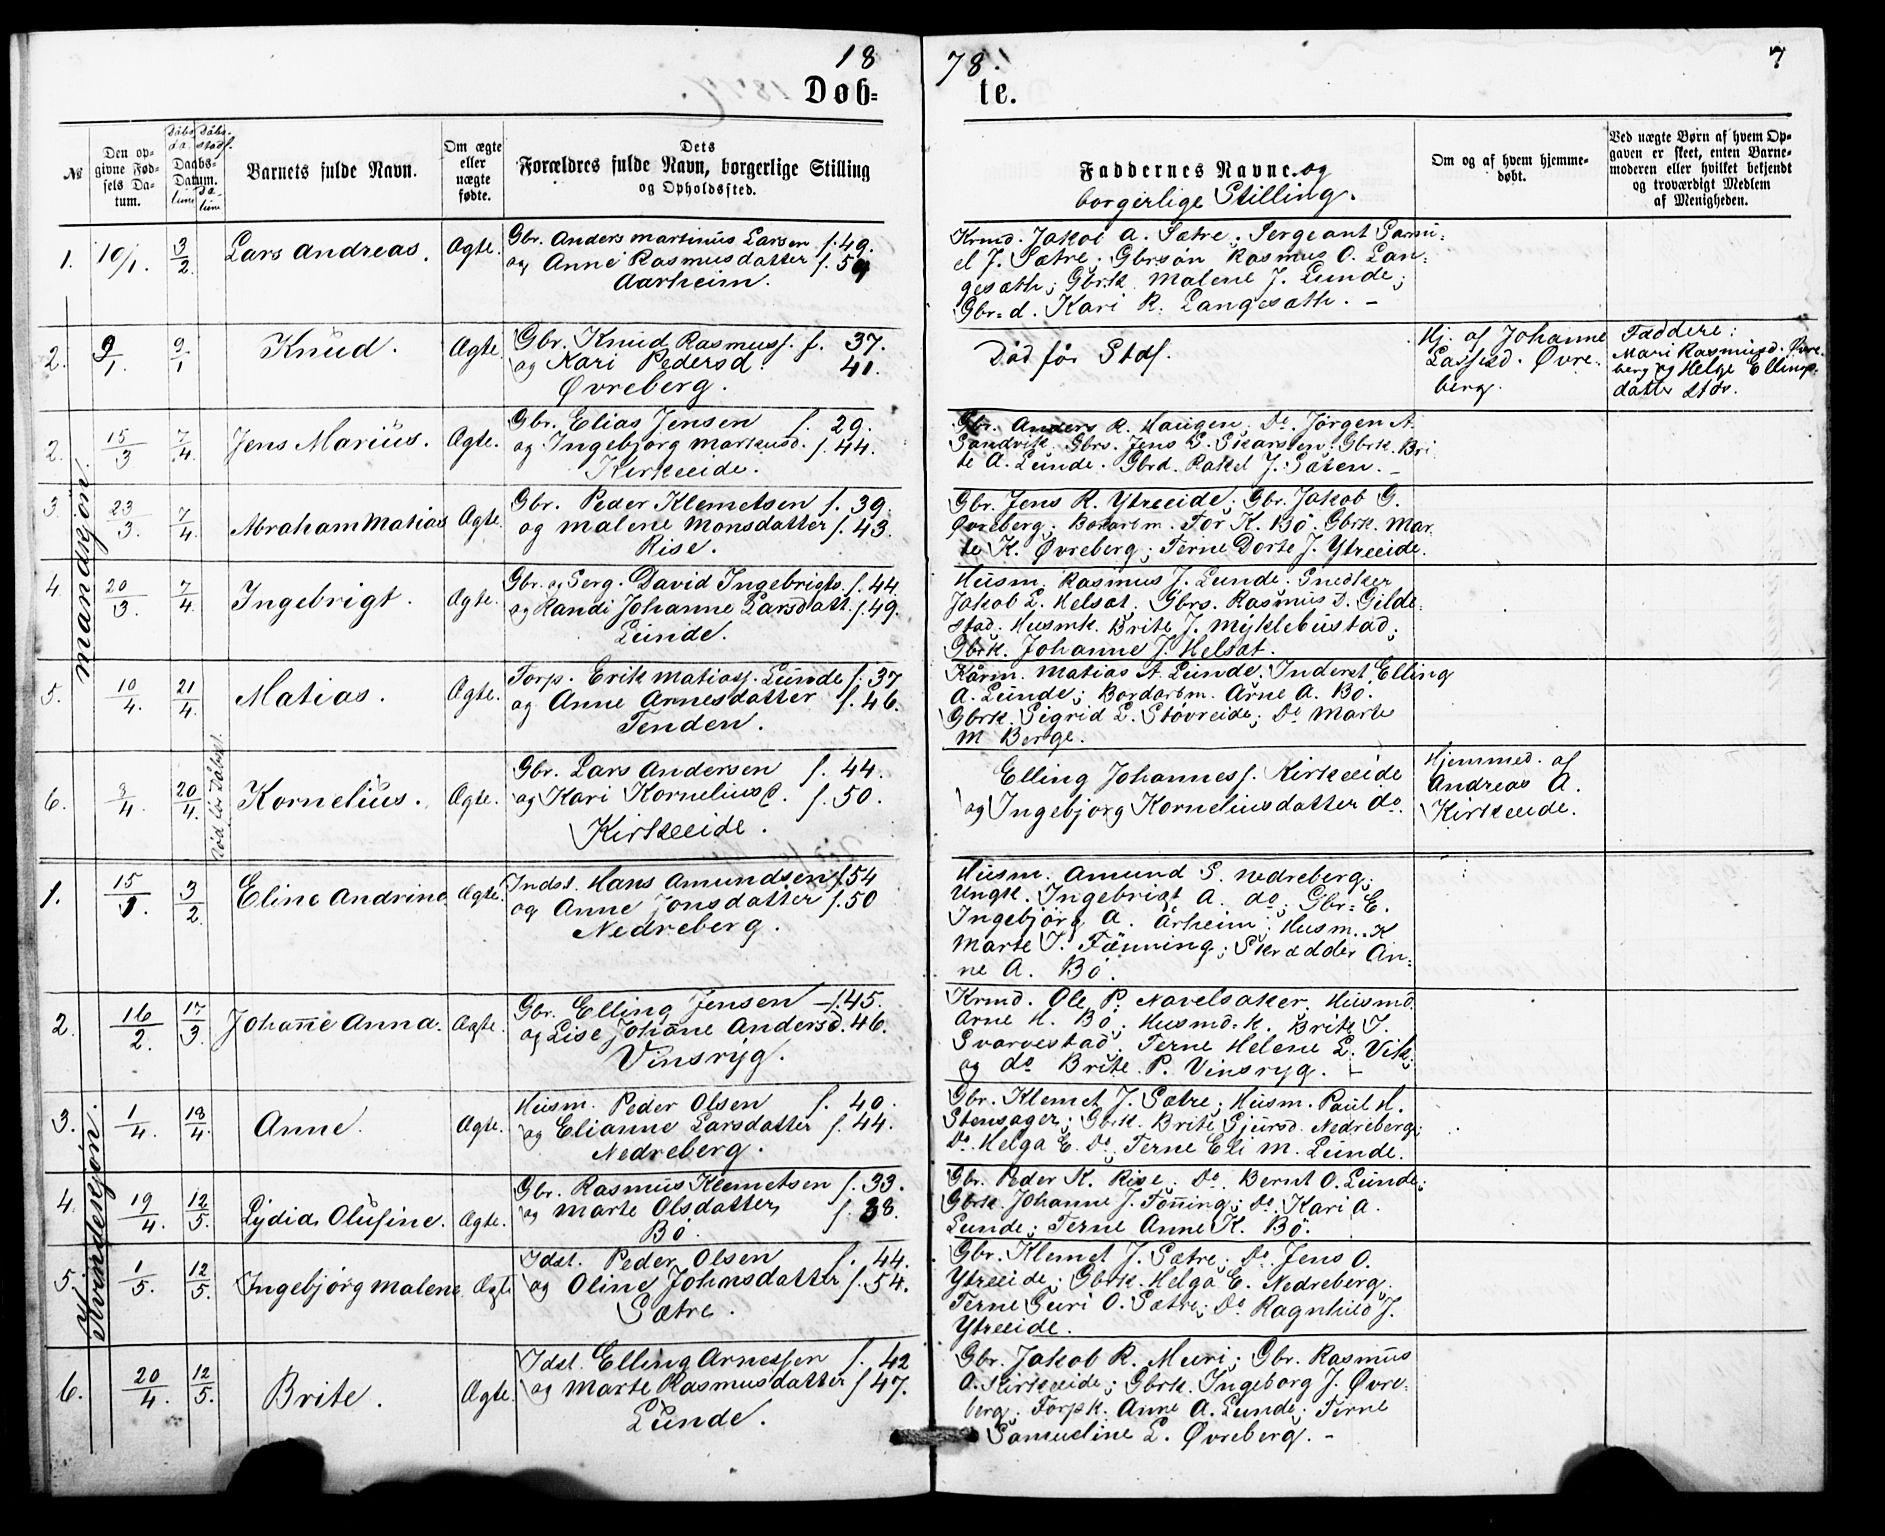 18
78.
7
Døb=
te.
№
Den op-
givne Fød-
sels Da-
tum.
Daabs-
Datum.
Barnets fulde Navn.
Om ægte
eller
uægte
fødte.
Dets
Forældres fulde Navn, borgerlige Stilling
og Opholdssted.
Faddernes Navne og
borgerlige Stilling.
Om og af hvem hjemme-
døbt.
Ved uægte Børn af hvem Op-
gaven er skeet, enten Barne-
moderen eller hvilket bekjendt
og troværdigt Medlem
af Menigheden.
Mandskjøn.
1. 10/1. 3/2 Lars Andreas. Ægte.
Gbr. Anders Martinus Larsen f. 49.
og Anne Rasmusdatter f. 54
Aarheim.
Krmd. Jakob A. Sætre. Sergeant Samu=
el J. Sætre; Gbrsøn Rasmus O. Lan=
gesæth; Gbrk. Malene J. Lunde;
Gbr=d. Kari R. Langesæth. –
2. 9/1 9/1 Knud. Ægte.
Gbr. Knud Rasmuss. f. 37.
og Kari Pedersd. 41.
Øvreberg.
Død før Stdf.
Hj. af Johanne
Lassesd. Øvre-
berg.
Faddere:
Mari Rasmusd. Øvre-
berg og Helge Ellings-
datter Stor.
2. 15/3 7/4 Jens Marius. Ægte.
Gbr. Elias Jensen f. 29.
og Ingebjørg Markusd. f. 44.
Kirkeeide.
Gbr. Anders R. Haugen, Do. Jørgen A.
Sandvik. Gbrs. Jens E. Skarsten; Gbrk. Bri
te A. Lunde. Gbrd. Rakel J. Sæten. –
3. 23/3. 7/4. Abraham Matias Ægte.
Gbr. Peder Klemetsen f. 39.
og Malene Monsdatter f. 43.
Rise.
Gbr. Jens R. Ytreeide; Gbr. Jakob G.
Øvreberg; Bordarbm. Tor K. Bö. Gbrk. Mar.
te K. Øvreberg; Terne Dorte J. Ytreeide.
4. 20/3. 7/4. Ingebrigt. Ægte.
Gbr. og Serg. David Ingebrigts. f. 44.
og Randi Johanne Larsdatt. f. 49.
Lunde.
Husm. Rasmus J. Lunde. Snedker
Jakob L. Helsæt. Gbrs. Rasmus D. Gilde-
stad. Husmk. Brite J. Myklebustad;
Gbrk. Johanne J. Helsæt.
5. 10/4. 21/4. Matias. Ægte.
Torp. Erik Matiass. Lunde f. 37
og Anne Arnesdatter f. 46.
Tenden.
Kårm. Matias A. Lunde. Inderst Elling
A. Lunde; Bordarbm. Arne A. Bö.
Gbrk. Sigrid L. Støvreide; Do. Marte
M Berge.
6. 3/4. 20/4. Kornelius. Ægte.
Gbr. Lars Andersen f. 44.
og Kari Korneliusd. f. 50.
Kirkeeide.
Elling Johanness. Kirkeeide
og Ingebjørg Korneliusdatter do.
Hjemmed. af
Andreas A.
Kirkeeide.
Kvindeskjøn.
1. 15/1. 3/2 Eline Andrine Ægte.
Indst. Hans Amundsen f. 54
og Anne Jonsdatter f. 50
Nedreberg.
Husm. Amund S. Nedreberg;
Ungk. Ingebrigt A. do; Gbr=E.
Ingebjörg A. Årheim; Husm..K
Marte J. Fönning; Skrædder An=
ne A. Bö.
2. 16/2. 17/3. Johanne Anna. Ægte.
Gbr. Elling Jensen – f. 45.
og Lise Johanne Andersd. 46.
Vinsryg.
Krmd. Ole P. Navelsaker. Husmd.
Arne H. Bö; Husmd.k. Brite J.
Svorvestad. Terne Helene L. Vik;
og do Brite P. Vinsryg. –
3. 1/4. 18/4. Anne. Ægte.
Husm. Peder Olsen f. 40.
og Elianne Larsdatter f. 44.
Nedreberg.
Gbr. Klemet J. Sætre; Husm. Paul H.
Stensager; Gbrk. Brite Sjursd. Nedreberg;
Do. Helga E. Do. Terne Eli M. Lunde.
4. 19/4. 12/5. Lydia Olusine. Ægte.
Gbr. Rasmus Klemetsen f. 33.
og Marte Olsdatter f. 38.
Bö.
Gbr. Peder K. Rise; Do. Bernt O. Lunde;
Gbrk. Johanne J. Fönning; Do. Kari A.
Lunde; Terne Anne K. Bö.
5. 1/5. 12/5. Ingebjørg Malene Ægte
Idst. Peder Olsen f. 44.
og Oline Johnsdatter f. 54.
Sætre.
Gbr. Klemet J. Sætre, Do. Jens O.
Ytreeide; Gbrk. Helga E. Nedreberg.
Terne Guri O. Sætre; Do Ragnhild J.
Ytreeide.
6. 20/4. 12/5. Brite. Ægte.
Idst. Elling Arnessen f. 42
og Marte Rasmusdatter f. 47.
Lunde.
Gbr. Jakob R. Muri; Gbr. Rasmus
A. Kirkeeide; Gbrk. Ingeborg J. Øvre-
berg; Torpk. Anne A. Lunde; Terne
Samueline L. Øvreberg. –